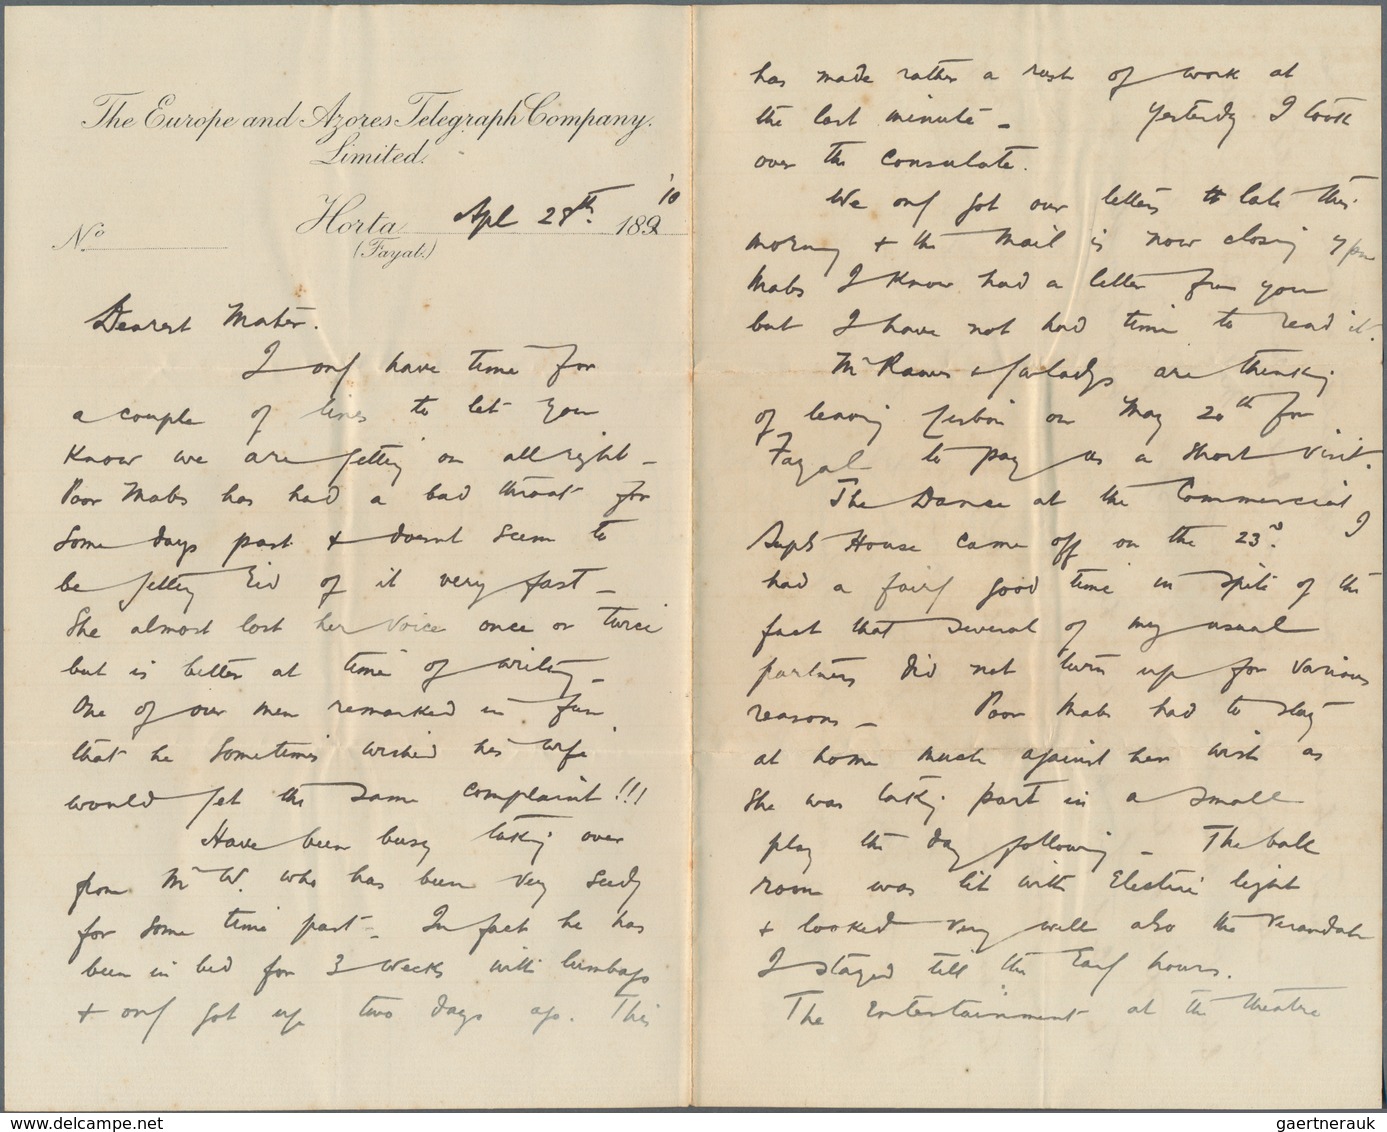 The Europe and Azores Telegraph Company.
Limited.
Horta Apl 28th. 1892 '10
No
(Fayal.)
Dearest Mater.
I only have time for
a couple of lines to let you
know we are getting on all right -
Poor Mabs has had a bad throat for
some days past & doesnt seem to
be getting rid of it very fast -
She almost lost her voice once or twice
but is better at time of writing -
One of our men remarked in fun
that he sometimes wished his wife
would get the same complaint!!!
Have been busy taking over
from Mr W. who has been very seedy
for some time past - In fact he has
been in bed for 3 weeks with lumbago
& only got up two days ago. This
has made rather a rush of work at
the last minute - Yesterday I took
over the Consulate.
We only got our letters late this
morning & the mail is now closing 7 pm
Mabs I know had a letter from you
but I have not had time to read it.
Mr & Gladys are thinking
of leaving Lisbon on May 20th for
Fayal to pay us a short visit.
The Dance at the Commercial
Supts House came off on the 23d. I
had a fairly good time in spite of the
fact that several of my usual
partners did not turn up for various
reasons - Poor Mabs had to stay
at home much against her wish as
she was taking part in a small
play the day following - The ball
room was lit with Electric light
& looked very well also the verandah
I stayed till the Early hours.
The Entertainment at the theatre
delcampe.net
gaertnerauk